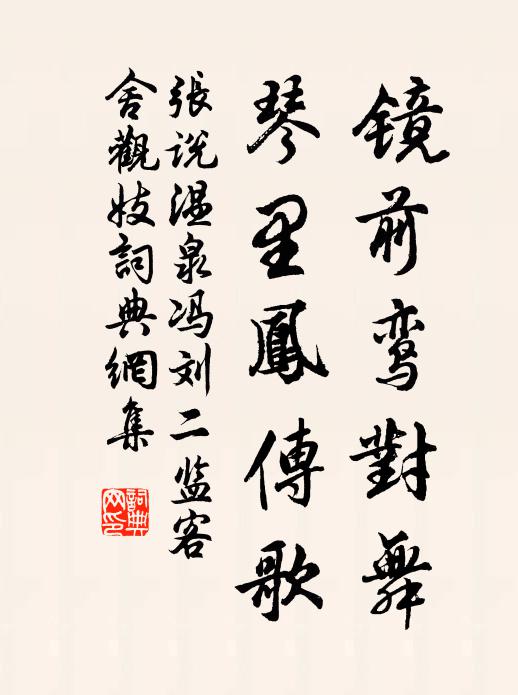 镜前鸾對舞
琴里鳳傳歌
張说温泉冯刘二监客
舍觀妓詞典網集
詞典
网印